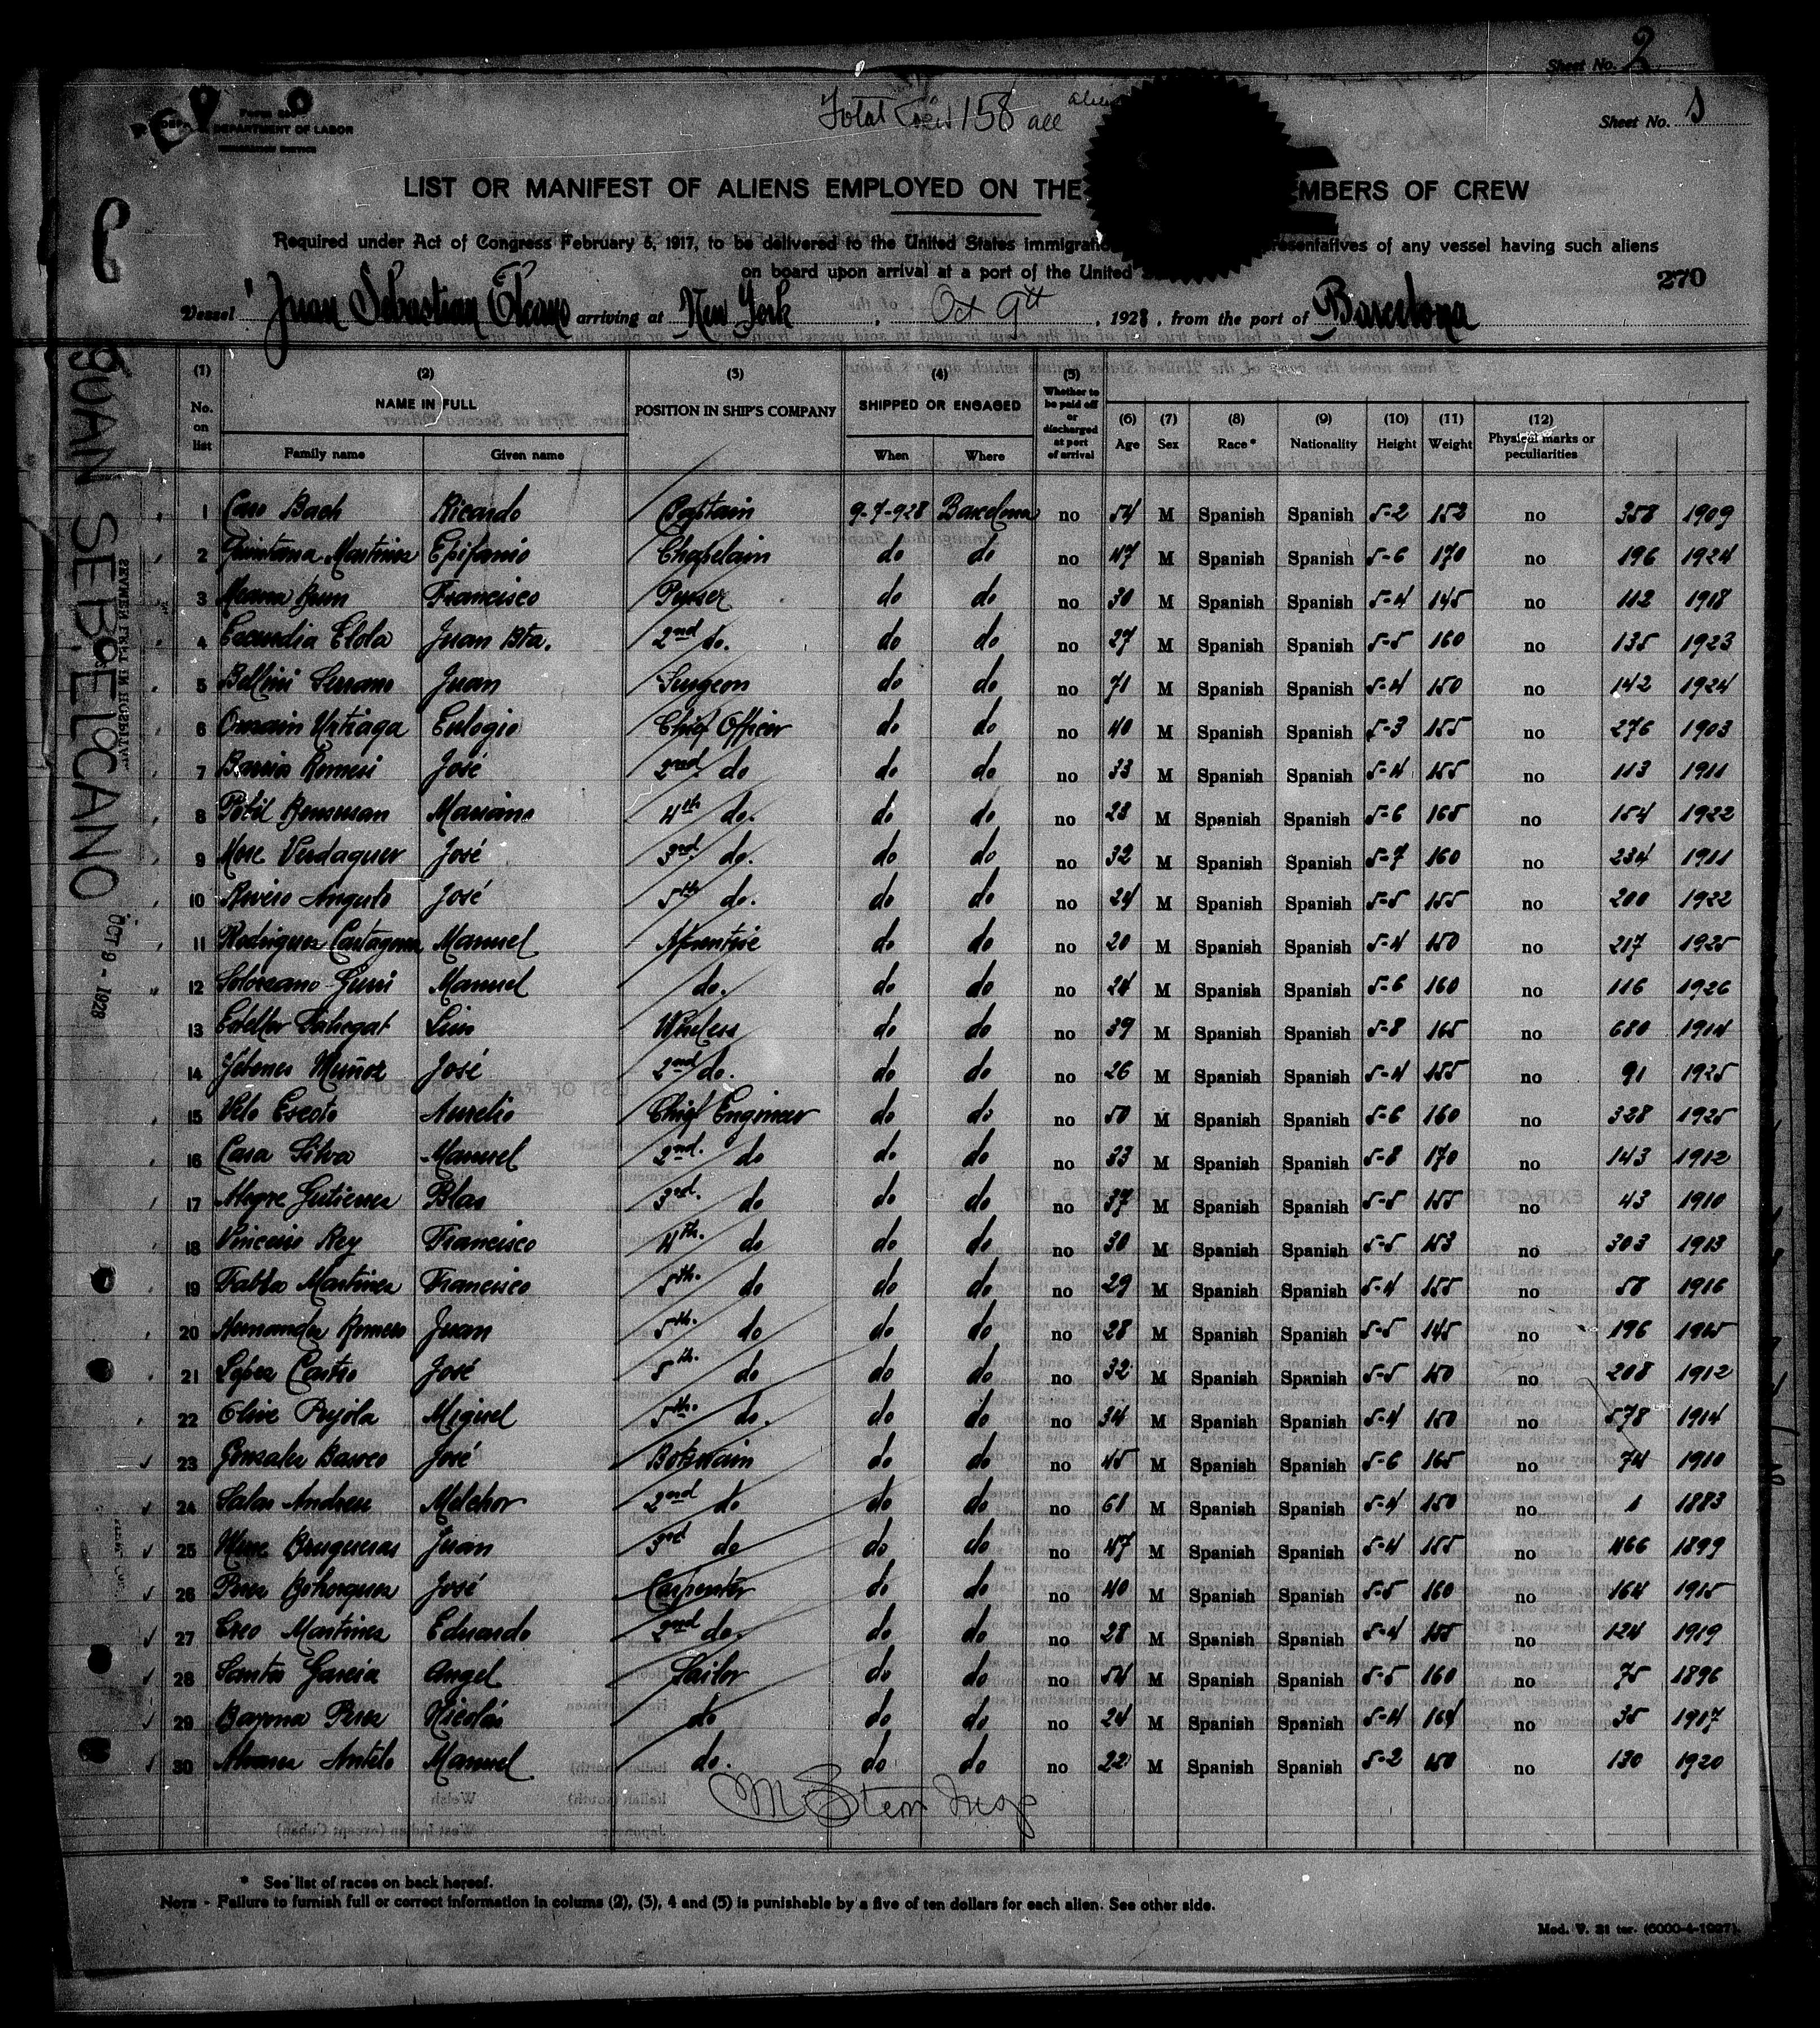 Sheet No. 2
Total Crew 158 all alien
Sheet No. 1
DEPARTMENT OF LABOR
IMMIGRATION SERVICE
LIST OR MANIFEST OF ALIENS EMPLOYED ON THE MBERS OF CREW
Required under Act of Congress February 5, 1917, to be delivered to the United States immigratio resentatives of any vessel having such aliens
on board upon arrival at a port of the United
270
Vessel "Juan Sebastian Elcano arriving at New York, Oct 9th, 1928, from the port of Barcelona
JUAN SEB. ELCANO
OCT 9 - 1928
(1) (2) (3) (4) (5)
No. on list NAME IN FULL POSITION IN SHIP'S COMPANY SHIPPED OR ENGAGED Whether to be paid off or discharged at port of arrival (6) Age (7) Sex (8) Race* (9) Nationality (10) Height (11) Weight (12) Physical marks or peculiarities
Family name Given name When Where
1 Caro Bach Ricardo Captain 9-7-928 Barcelona no 54 M Spanish Spanish 5-2 152 no 358 1909
2 Quintana Martinez Epifanio Chapelain do do no 47 M Spanish Spanish 5-6 170 no 196 1924
3 Francisco Purser do do no 30 M Spanish Spanish 5-4 145 no 112 1918
4 Escundia Elola Juan Bta. 2nd do. do do no 27 M Spanish Spanish 5-5 160 no 135 1923
5 Bellini Serrano Juan Surgeon do do no 71 M Spanish Spanish 5-4 150 no 142 1924
6 Urtiaga Eulogio Chief Officer do do no 40 M Spanish Spanish 5-3 155 no 276 1903
7 José 2nd do do do no 33 M Spanish Spanish 5-4 155 no 113 1911
8 Mariano 4th do. do do no 28 M Spanish Spanish 5-6 165 no 154 1922
9 Verdaguer José 3rd do. do do no 32 M Spanish Spanish 5-7 160 no 234 1911
10 Rivero Angulo José 5th do. do do no 24 M Spanish Spanish 5-5 155 no 200 1922
11 Rodriguez Cartagena Manuel do do no 20 M Spanish Spanish 5-4 150 no 217 1925
12 Manuel do. do do no 24 M Spanish Spanish 5-6 160 no 116 1926
13 Luis Wireless do do no 39 M Spanish Spanish 5-8 165 no 680 1914
14 Muñoz José 2nd do. do do no 26 M Spanish Spanish 5-4 155 no 91 1925
15 Aurelio Chief Engineer do do no 50 M Spanish Spanish 5-6 160 no 328 1925
16 Casa Silva Manuel 2nd. do do do no 33 M Spanish Spanish 5-8 170 no 143 1912
17 Alegre Gutierrez Blas 3rd. do do do no 37 M Spanish Spanish 5-5 155 no 43 1910
18 Rey Francisco 4th. do do do no 30 M Spanish Spanish 5-5 153 no 303 1913
19 Martinez Francisco 5th. do do do no 29 M Spanish Spanish 5-4 155 no 58 1916
20 Hernandez Romero Juan 5th. do do do no 28 M Spanish Spanish 5-5 145 no 196 1915
21 Lopez Castro José 5th. do do do no 32 M Spanish Spanish 5-5 150 no 208 1912
22 Olive Pujola Miguel 5th. do. do do no 34 M Spanish Spanish 5-4 150 no 578 1914
23 Gonzalez José Botswain do do no 45 M Spanish Spanish 5-6 165 no 74 1910
24 Salas Andreu Melchor 2nd do do do no 61 M Spanish Spanish 5-4 150 no 1 1883
25 Brugueras Juan 3rd do do do no 47 M Spanish Spanish 5-4 155 no 466 1899
26 Perez Bohorquez José Carpenter do do no 40 M Spanish Spanish 5-5 160 no 164 1915
27 Martinez Eduardo 2nd do. do do no 28 M Spanish Spanish 5-4 155 no 124 1919
28 Santos Garcia Angel Sailor do do no 54 M Spanish Spanish 5-5 160 no 75 1896
29 Bayona Perez Nicolás do do do no 24 M Spanish Spanish 5-4 164 no 35 1917
30 Alvarez Antelo Manuel do. do do no 22 M Spanish Spanish 5-2 150 no 130 1920
M Stern Insp
* See list of races on back hereof.
NOTE - Failure to furnish full or correct information in colums (2), (3), 4 and (5) is punishable by a five of ten dollars for each alien. See other side.
Mod. V. 21 ter. (6000-4-1927).